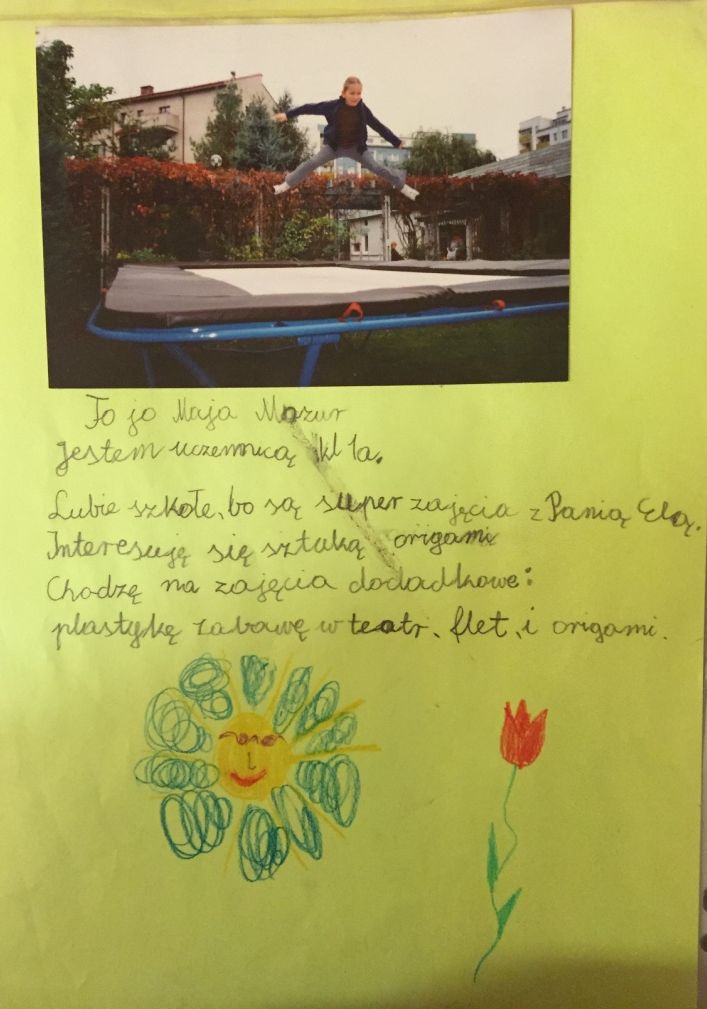 To ja Maja Mazur
Jestem uczennicą kl 1a.
Lubie szkołe, bo są super zajęcia z Panią Elą.
Interesuję się sztuką origami
Chodzę na zajęcia dodadkowe:
plastykę zabawę w teatr, flet, i origami.